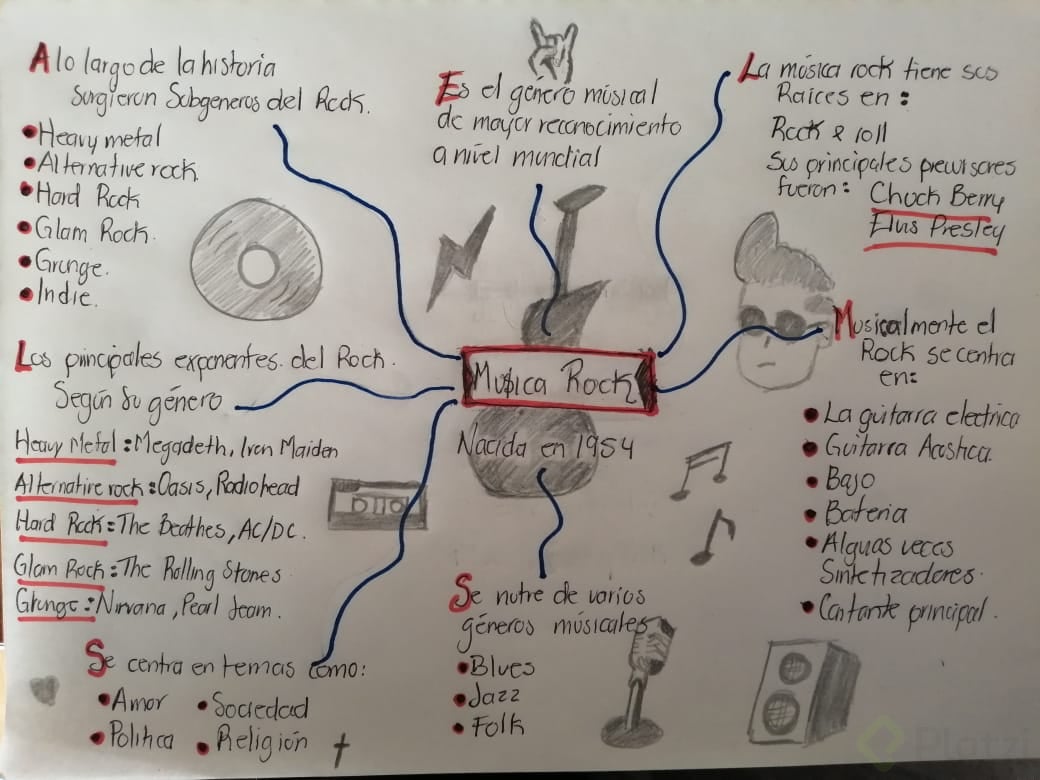 A lo largo de la historia
Surgieron Subgeneros del Rock.
Heavy metal
Alternative rock.
Hard Rock
Glam Rock.
Grunge.
Indie.
Es el género músical
de mayor reconocimiento
a nivel mundial
La música rock tiene sus
Raices en :
Rock & roll
Sus principales precursores
fueron : Chuck Berry
Elvis Presley
Musicalmente el
Rock se centra
en:
La guitarra electrica
Guitarra Acustica.
Bajo
Bateria
Alguas veces
Sintetizadores.
Cantante principal.
Musica Rock
Nacida en 1954
Los principales exponentes del Rock.
Según su género
Heavy Metal : Megadeth, Iron Maiden
Alternative rock : Oasis, Radiohead
Hard Rock : The Beathes, AC/DC.
Glam Rock : The Rolling Stones.
Grunge : Nirvana, Pearl Jeam.
Se centra en temas como:
Amor
Sociedad
Politica
Religión
Se nutre de varios
géneros músicales
Blues
Jazz
Folk
Platzi